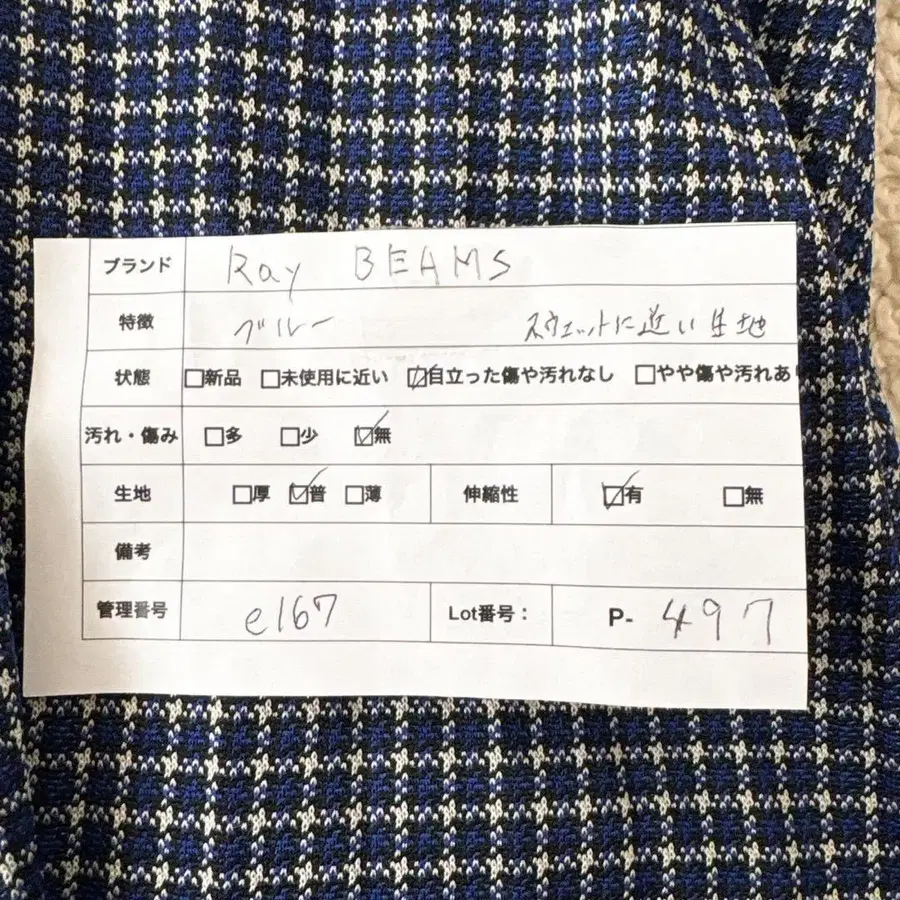 ブランド Ray BEAMS
特徴 ブルー スウェットに近い生地
状態 □新品 □未使用に近い ☑目立った傷や汚れなし □やや傷や汚れあり
汚れ・傷み □多 □少 ☑無
生地 □厚 ☑普 □薄 伸縮性 ☑有 □無
備考
管理番号 e167 Lot番号： P- 497